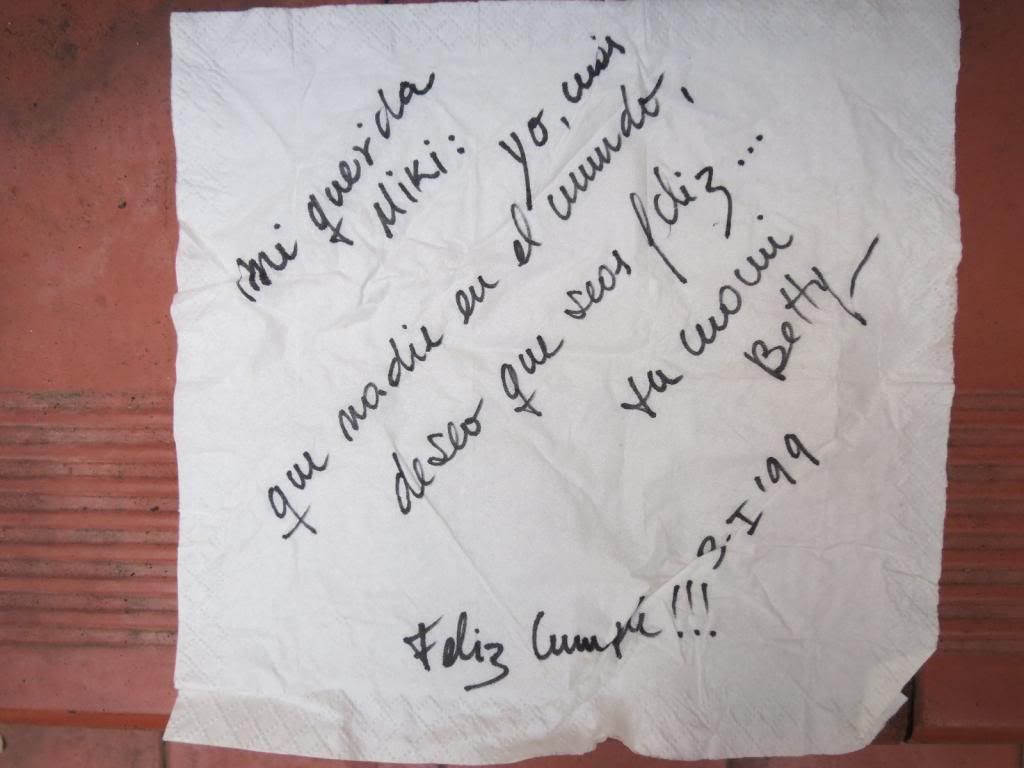 mi querida
Miki:
yo, más
que nadie en el mundo,
deseo que seas feliz...
tu mami
Betty
3-I'99
Feliz Cumple!!!